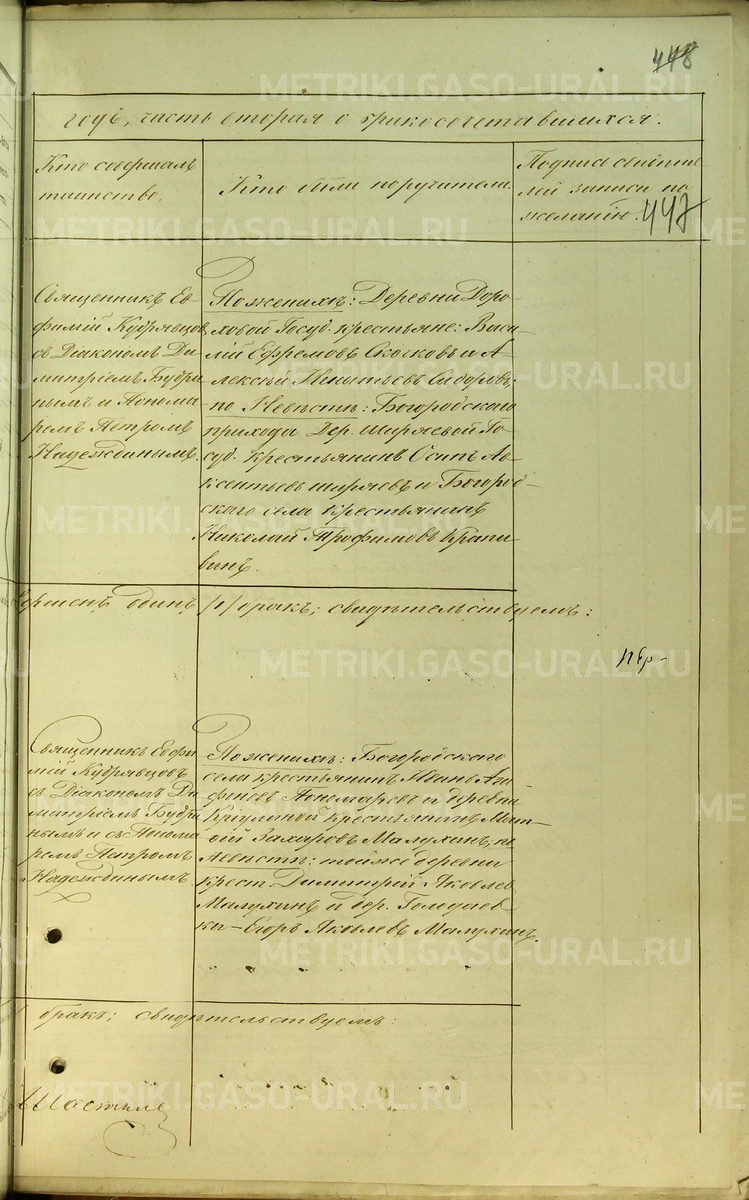 448
годъ, часть вторая о бракосочетавшихся.
Кто совершалъ
таинство.
Кто были поручители
Подпись свидѣте
лей записи по
желанію.
447
Священникъ Ев-
фимій Кудрявцовъ
съ Діакономъ Ди-
митріемъ Будри
нымъ и Понома
ремъ Петромъ
Надеждинымъ.
По женихѣ: Деревни Доро-
ховой Госуд. крестьяне: Васи-
лій Ефремовъ Скочковъ и А-
лексѣй Игнатьевъ Сидоровъ;
по Невѣстѣ: Богородскаго
прихода Дер. Ширяевой Го-
суд. крестьянинъ Осипъ Ав-
ксентьевъ Ширяевъ и Богород-
скаго села крестьянинъ
Николай Трофимовъ Крапи-
винъ.
одинъ /1/ бракъ; свидѣтельствуемъ:
Священникъ Евфи
мій Кудрявцовъ
съ Діакономъ Ди
митріемъ Будри
нымъ и съ Понома
ремъ Петромъ
Надеждинымъ.
По женихѣ: Богородскаго
села крестьянинъ Иванъ
Пономаревъ и деревни
крестьянинъ
Захаровъ Малухинъ; по
Невѣстѣ: тойже деревни
крест. Димитрій Яковлевъ
Малухинъ и дер.
ки – Егоръ Яковлевъ Малухинъ.
бракъ; свидѣтельствуемъ:
METRIKI.GASO-URAL.RU